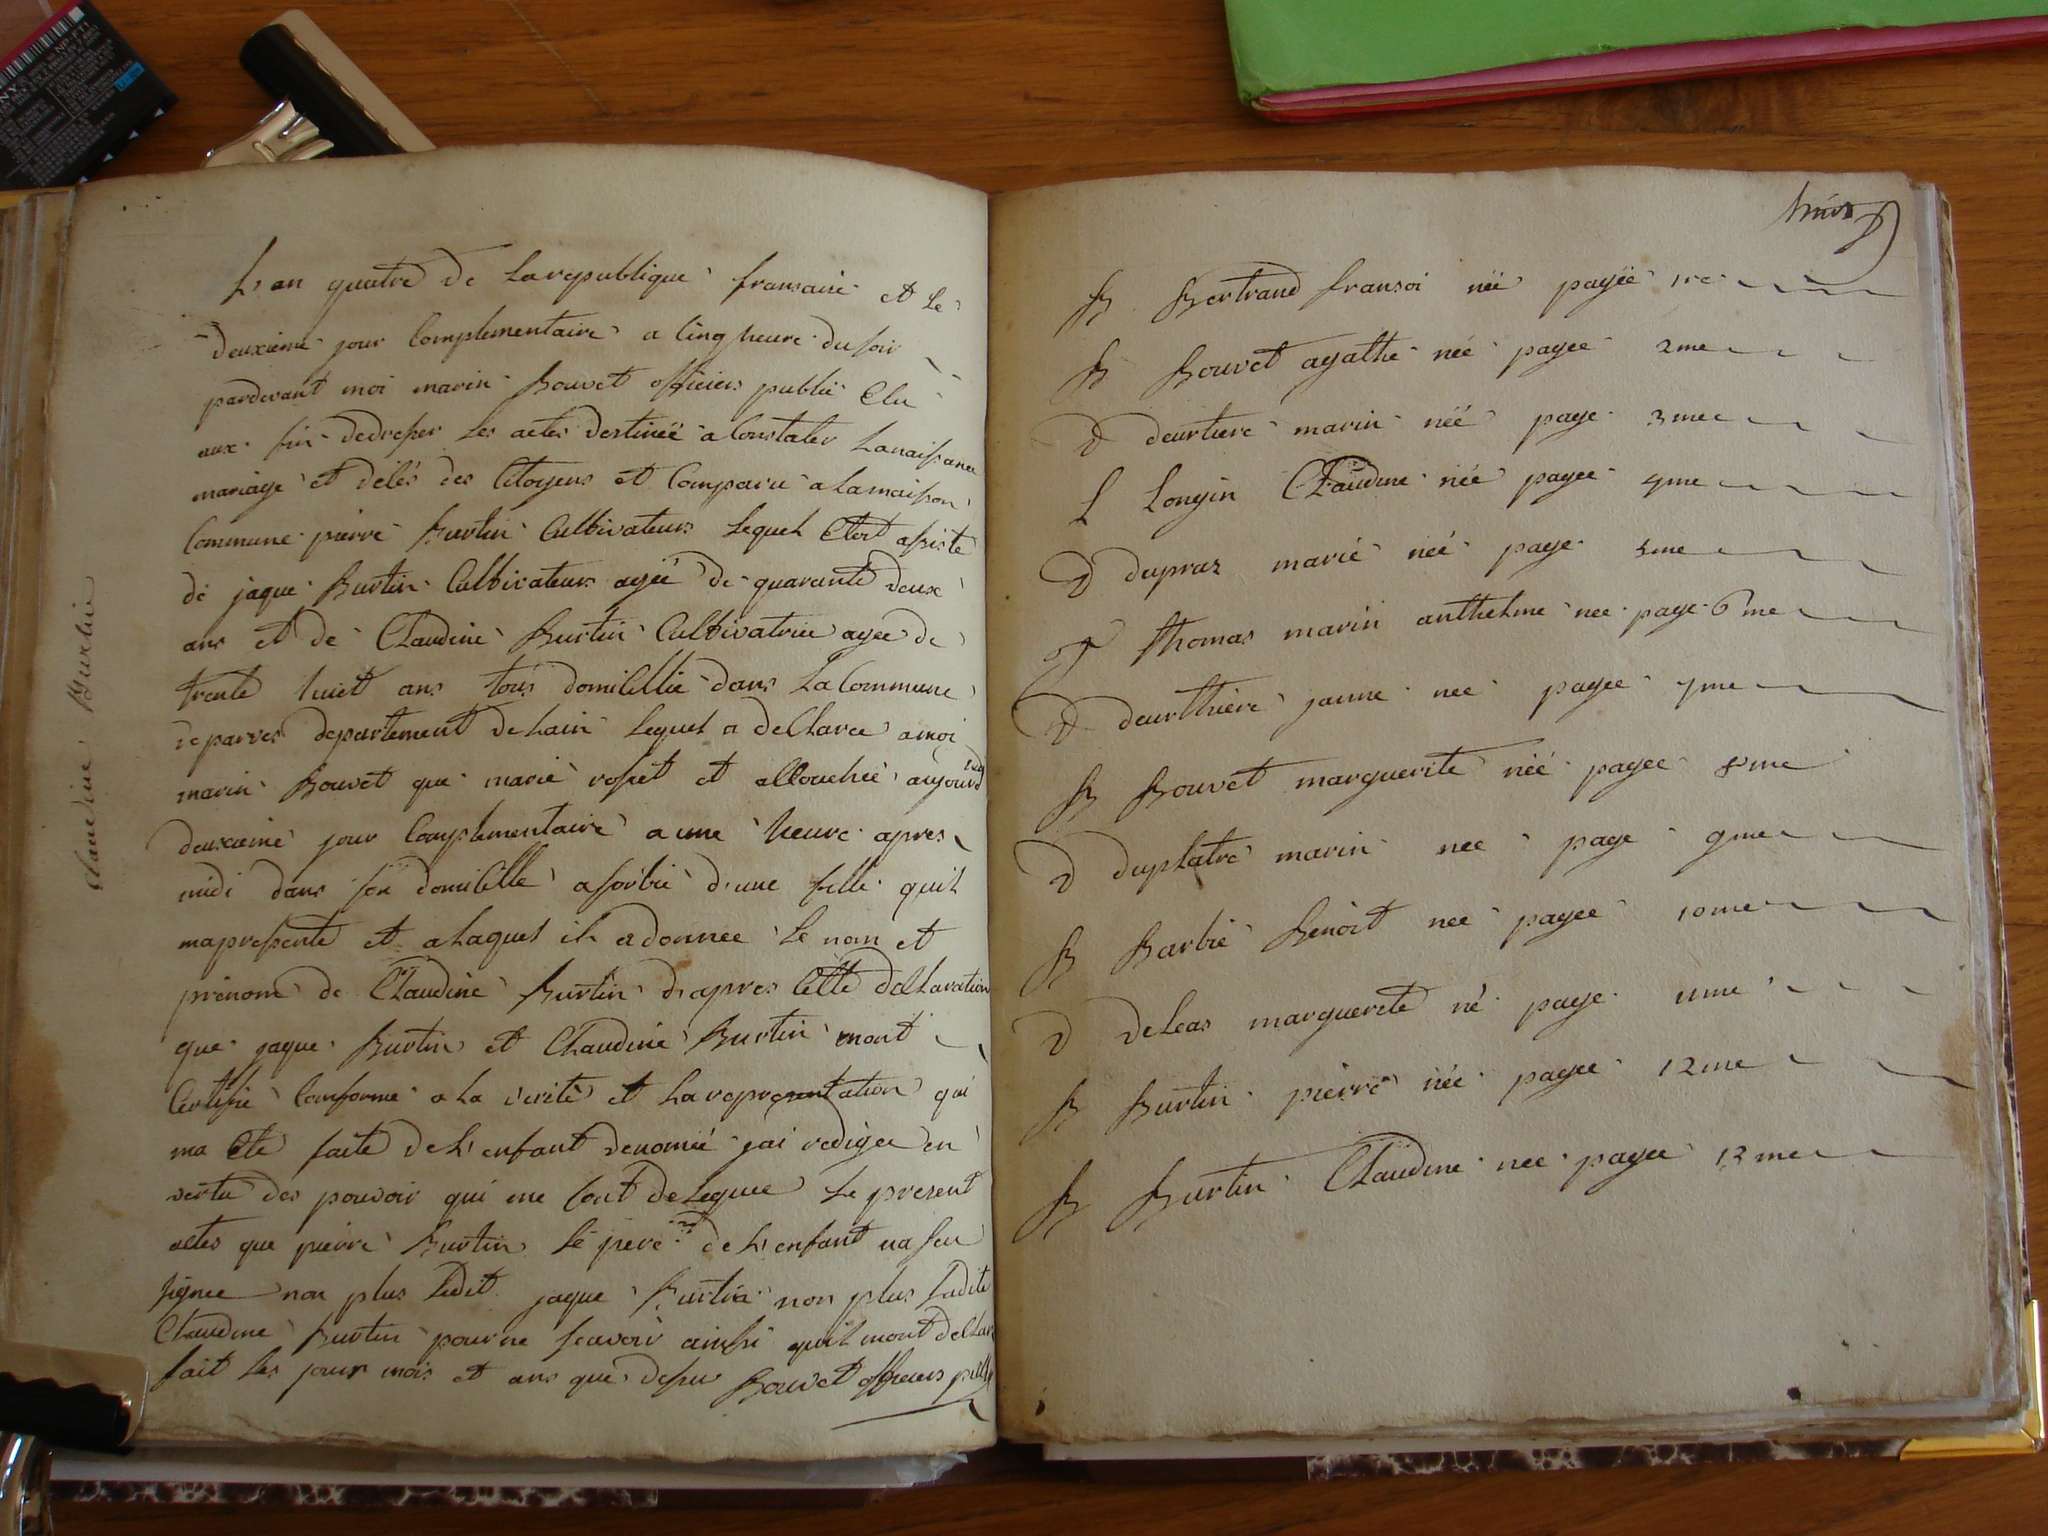 Claudine Burtin
L'an quatre de La republique fransaise et Le
deuxieme jour Complementaire a Cinq heure du soir
pardevant moi marin Bouvet officiers publié Elu
aux fin dedresser Les actes destineé a Constater Lanaissance
mariage et désés des Citoyens et Comparu a Lamaison
Commune pierre Burtin Cultivateurs Lequel Etst asisté
de jaque Burtin Cultivateurs ageé de quarante deux
ans et de Claudine Burtin Cultivatrice agee de
trente huiet ans tous domicillié dans La Commune
departement de Lain Lequel a declaree a moi
marin Bouvet que marie et allouchée aujourd
deuxieme jour Complementaire a une heure apres
midi dans son domicille d'une fille quil
mapresente et a Laquel il a donnee Le nom et
prenom de Claudine Burtin d'apres Cette declaration
que jaque Burtin et Claudine Burtin mont
Certifié Conforme a La verité et La representation qui
ma Ete faite de L'enfant denomeé jai redigee en
vertu des pouvoir qui me sont deleguee Le present
actes que pierre Burtin Le pere de L'enfant na seu
signee non plus Ledit jaque Burtin non plus Ladite
Claudine Burtin pour ne scavoir ainssi quil mont
fait Les jour mois et ans que desu Bouvet officiers
B Bertrand fransoi neé pageé 1re
B Bouvet agathe neé pagee 2me
D deurtiere marin neé page 3me
L Longin Claudine née pageé 4me
D dupraz marie neé page 5me
T thomas marin anthelme nee page 6me
D deurthiere janne nee pagee 7me
B Bouvet marguerite neé pagee 8me
D duplatre marin nee page 9me
B Barbié Benoit nee pageé 10me
D deleas marguerete né page 11me
B Burtin pierre neé pagee 12me
B Burtin Claudine nee pagee 13me